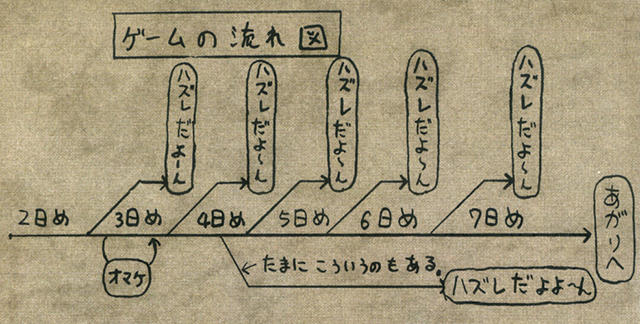 ゲームの流れ図
ハズレだよーん
ハズレだよ〜ん
ハズレだよ〜ん
ハズレだよ〜ん
ハズレだよ〜ん
2日め 3日め 4日め 5日め 6日め 7日め
あがりへ
オマケ
たまにこういうのもある。
ハズレだよよ〜ん